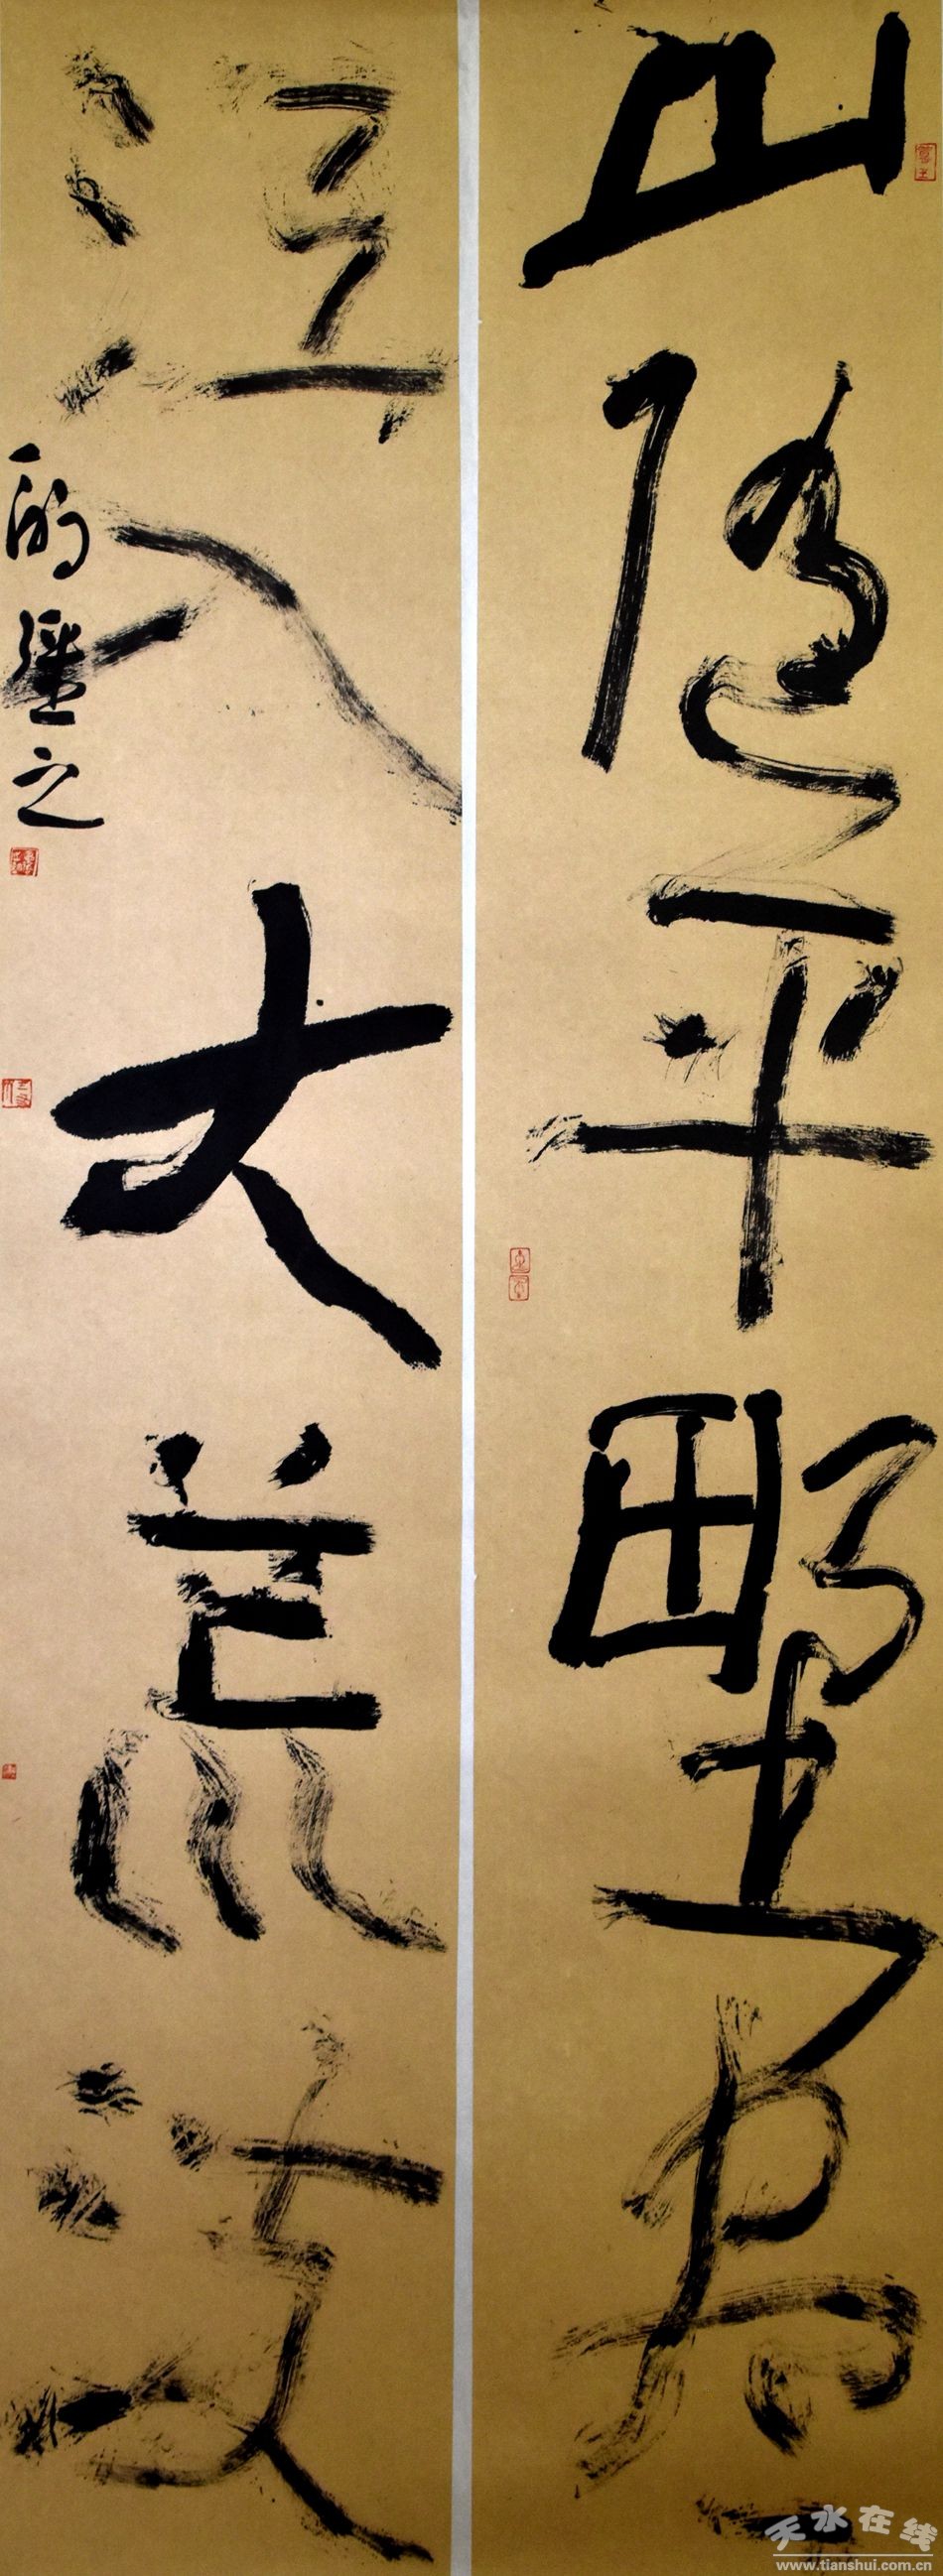 山随平野尽
江入大荒流
疆之
天水在线
www.tianshui.com.cn